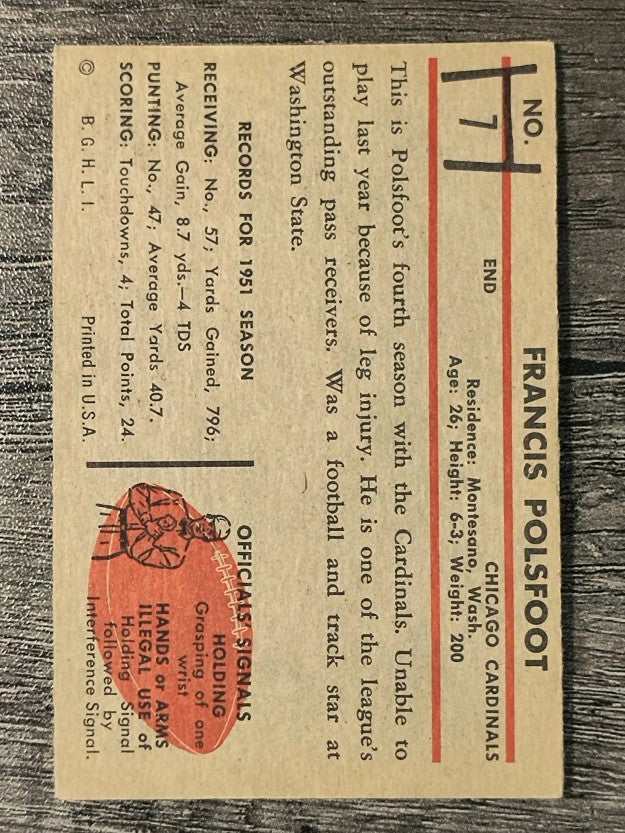 NO.
7
FRANCIS POLSFOOT
END
CHICAGO CARDINALS
Residence: Montesano, Wash.
Age: 26; Height: 6-3; Weight: 200
This is Polsfoot's fourth season with the Cardinals. Unable to
play last year because of leg injury. He is one of the league's
outstanding pass receivers. Was a football and track star at
Washington State.
RECORDS FOR 1951 SEASON
RECEIVING: No., 57; Yards Gained, 796;
Average Gain, 8.7 yds.—4 TDS
PUNTING: No., 47; Average Yards 40.7.
SCORING: Touchdowns, 4; Total Points, 24.
© B. G. H. L. I.
Printed in U.S.A.
OFFICIALS SIGNALS
HOLDING
Grasping of one
wrist
HANDS or ARMS
ILLEGAL USE of
Holding Signal
followed by
Interference Signal.